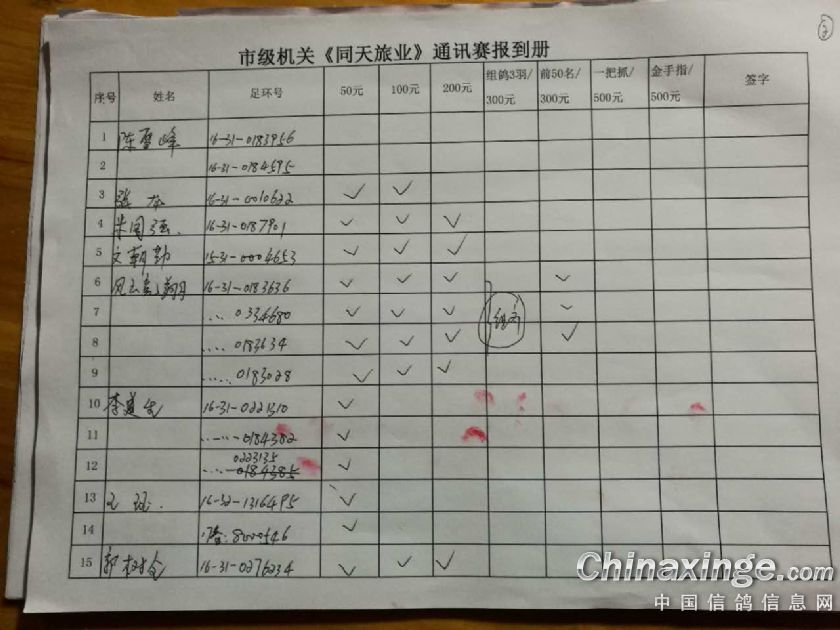 2
市级机关《同天旅业》通讯赛报到册
序号 姓名 足环号 50元 100元 200元 组鸽3羽/300元 前50名/300元 一把抓/500元 金手指/500元 签字
1 16-31-0183956
2 16-31-0184595
3 16-31-0010622 ✓ ✓
4 米国强 16-31-0187901 ✓ ✓ ✓
5 文朝勤 15-31-0004653 ✓ ✓ ✓
6 16-31-0183636 ✓ ✓ ✓ ✓
7 ... 0334680 ✓ ✓ ✓ ✓
8 .... 0183634 ✓ ✓ ✓ ✓
9 ..... 0183028 ✓ ✓ ✓
10 16-31-0221310 ✓
11 ...... 0184382 ✓
12 0223135 ✓
..... 0184385
13 王 16-32-1316495 ✓
14 8000546 ✓
15 郭树全 16-31-0276234 ✓ ✓ ✓
Chinaxinge.com
中国信鸽信息网